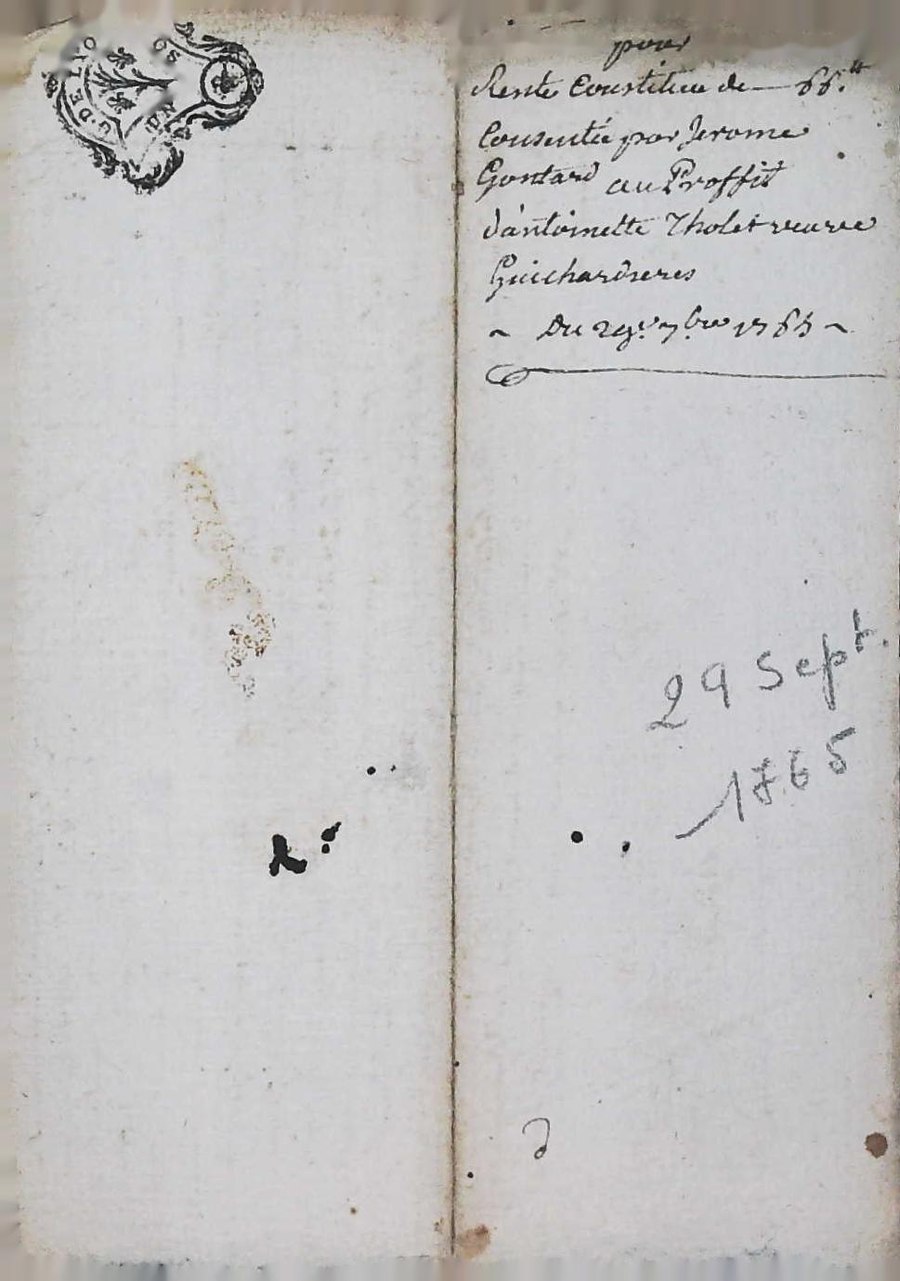 G. DE LYO
pour
Rente Constituée de — 66.ᵗᵗ
Consentie par Jerome
Gontard au Proffit
d'antoinette Tholet veuve
Guichard
~ Du 29.ᵉ 7.bre 1765 ~
29 Sept.
1765